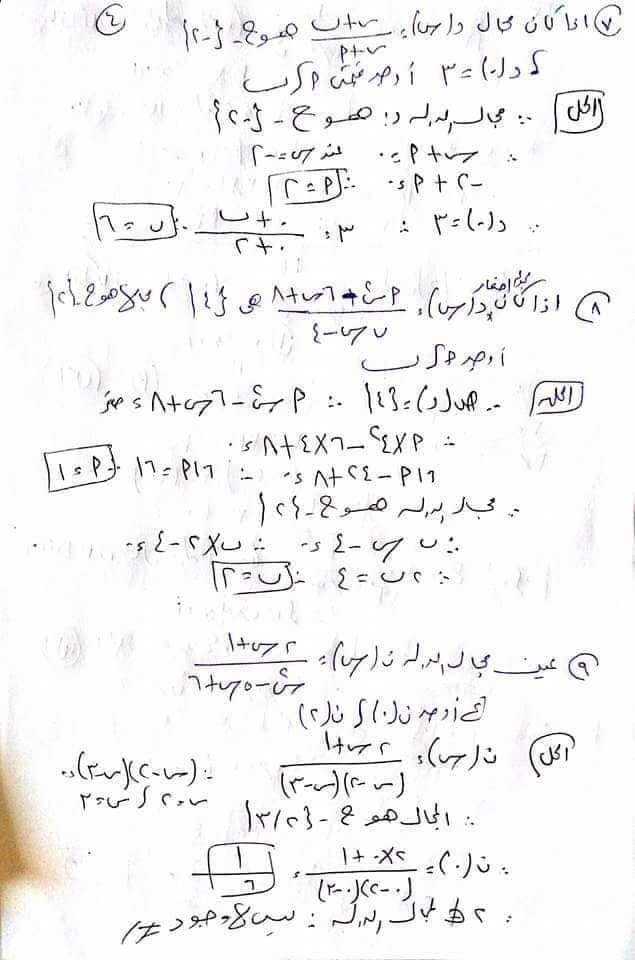 ٤
٧) إذا كان مجال د(س) = (س + ب)/(س + P) هو ح - {-٢}
، د(٠) = ٣ أوجد قيمتى P ، ب
الحل ∵ مجال الدالة د: هو ح - {-٢}
∴ س + P = ٠ عند س = -٢
-٢ + P = ٠ ∴ P = ٢
∵ د(٠) = ٣ ∴ ٣ = (٠ + ب)/(٠ + ٢) ∴ ب = ٦
٨) إذا كان مجموعة أصفار د(س) = (P س² - ٦س + ٨)/(ب س - ٤) هى {٤} ، مجالها هو ح - {٢}
أوجد P ، ب
الحل ∵ ص(د) = {٤} ∴ P س² - ٦س + ٨ = صفر
∴ P × ٤² - ٦ × ٤ + ٨ = ٠
١٦P - ٢٤ + ٨ = ٠ ∴ ١٦P = ١٦ ∴ P = ١
∵ مجال الدالة هو ح - {٢}
∴ ب س - ٤ = ٠ ∴ ب × ٢ - ٤ = ٠
∴ ٢ب = ٤ ∴ ب = ٢
٩) عين مجال الدالة ن(س) = (٢س + ١)/(س² - ٥س + ٦)
ثم أوجد ن(٠) ، ن(٢)
الحل ن(س) = (٢س + ١)/((س - ٢)(س - ٣)) ∴ (س - ٢)(س - ٣) = ٠
س = ٢ ، س = ٣
∴ المجال هو ح - {٢، ٣}
∴ ن(٠) = (٢ × ٠ + ١)/((٠ - ٢)(٠ - ٣)) = ١/٦
∵ ٢ ∉ مجال الدالة ∴ ليس له وجود